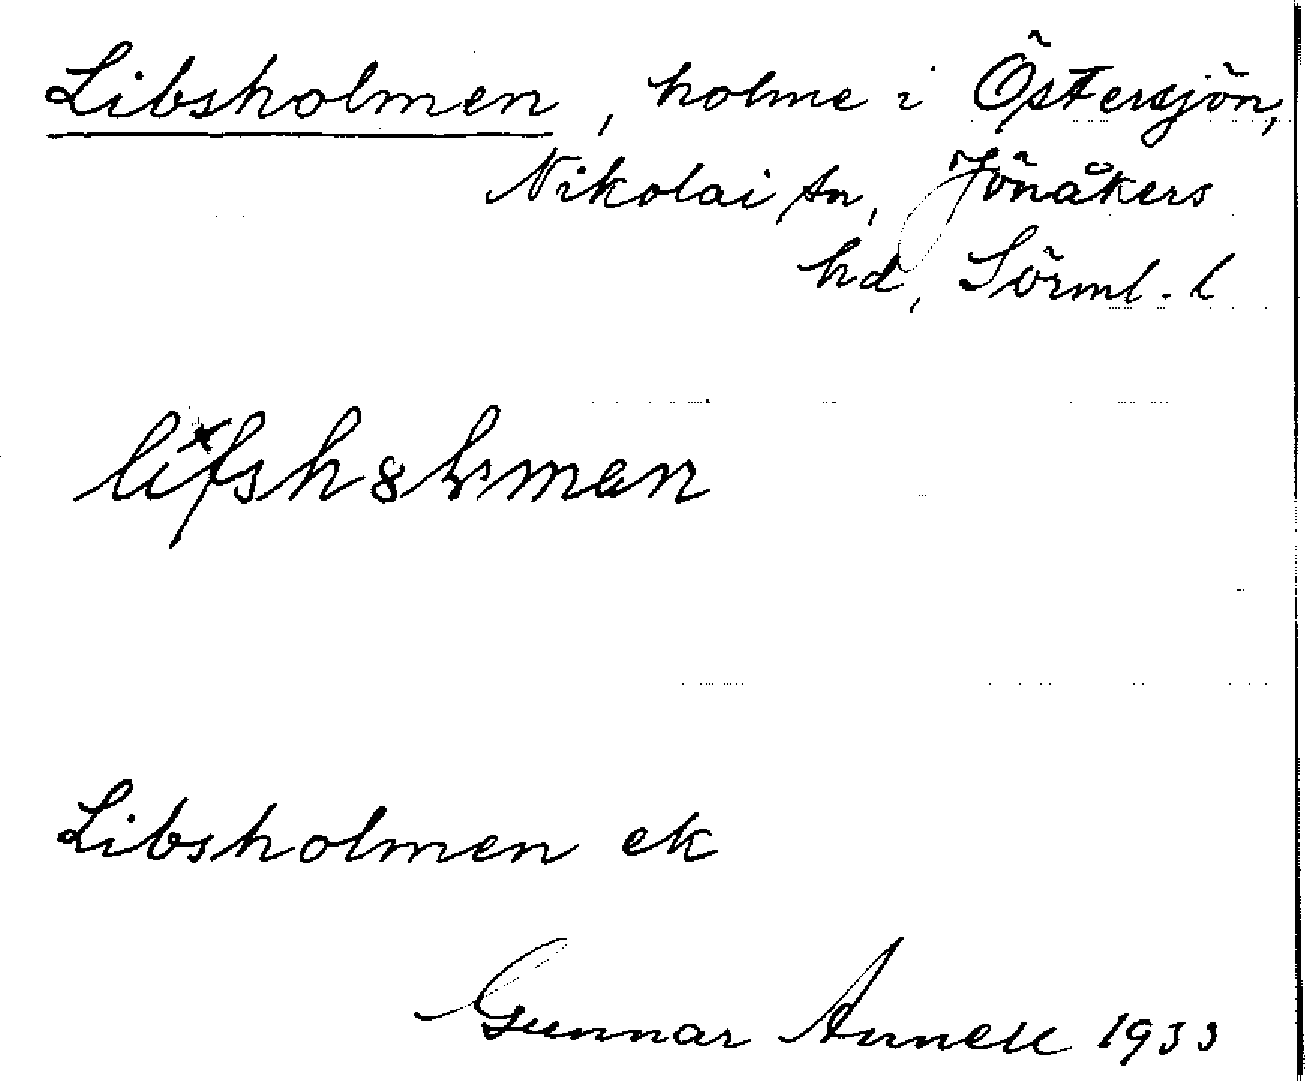 Libsholmen, holme i Östersjön,
Nikolai sn, Jönåkers
hd, Sörml. l
Libsholmen ek
Gunnar Annell 1933